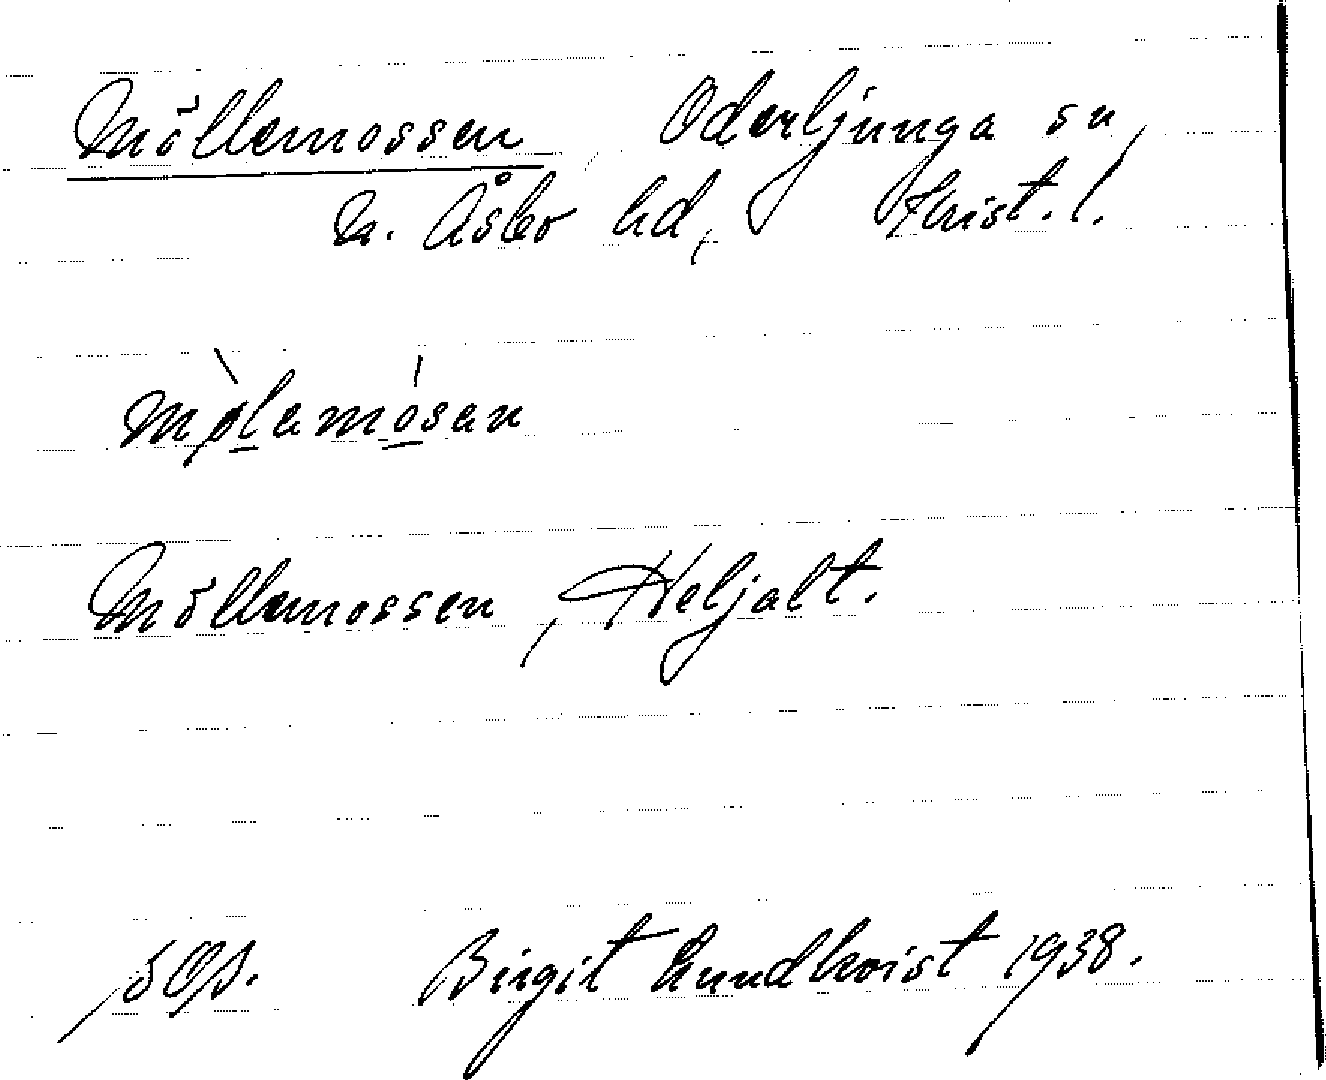 Möllemossen, Oderljunga sn,
N. Åsbo hd, Krist. l.
mø̀lamósan
Möllemossen, Heljalt.
Birgit Lundkvist 1938.